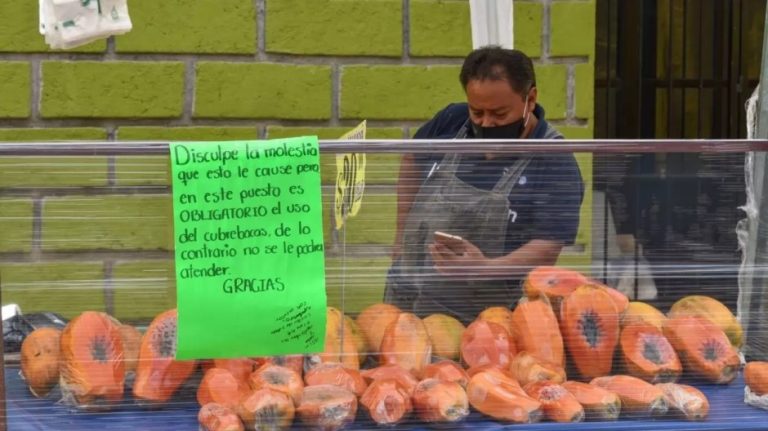 Disculpe la molestia
que esto le cause pero
en este puesto es
OBLIGATORIO el uso
del cubrebocas, de lo
contrario no se le podra
atender.
GRACIAS